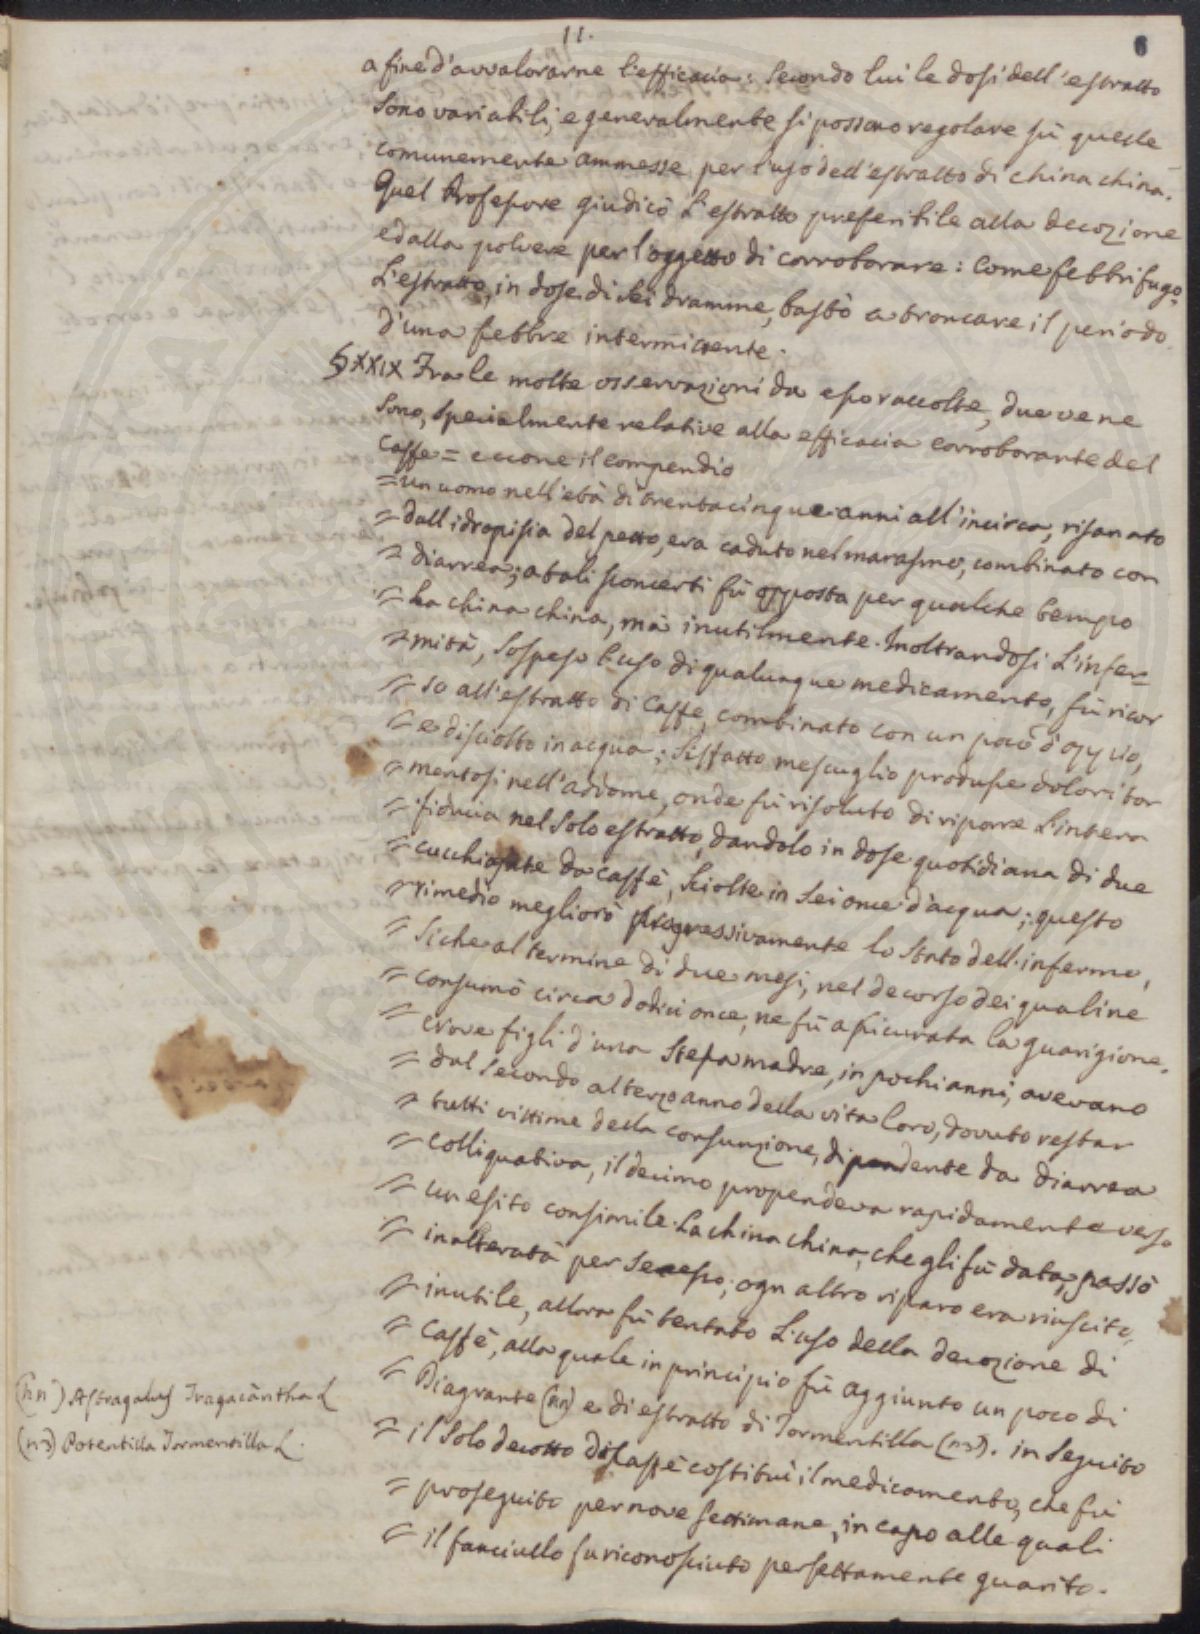 11.
6
a fine d'avvalorarne l'efficacia: secondo lui le dosi dell'estratto
sono variabili, e generalmente si possono regolare sù quelle
comunemente ammesse per l'uso dell'estratto di china china.
Quel Professore giudicò l'estratto preferibile alla decozione
ed alla polvere per l'oggetto di corroborare: Come febbrifugo,
l'estratto, in dose di sei dramme, bastò a troncare il periodo
d'una febbre intermittente.
§XXIX Fra le molte osservazioni da esso raccolte, due ve ne
sono, specialmente relative alla efficacia corroborante del
Caffe = eccone il compendio
= Un uomo nell'età di trentacinque anni all'incirca, risanato
= dall'idropisia del petto, era caduto nel marasmo, combinato con
= diarrea; a tali sconcerti fù opposta per qualche tempo
= la china china, mà inutilmente. Inoltrandosi l'infer=
= mità, sospeso l'uso di qualunque medicamento, fù ricor
= so all'estratto di Caffe, combinato con un poco d'oppio,
= e disciolto in acqua; siffatto mescuglio produsse dolori tor
= mentosi nell'adome, onde fù risoluto di riporre l'intera
= fiducia nel solo estratto, dandolo in dose quotidiana di due
= cucchiajate da caffè, sciolte in sei once d'acqua; questo
= rimedio megliorò progressivamente lo stato dell'infermo,
= sicche al termine di due mesi, nel decorso dei quali ne
= consumò circa dodici once, ne fù assicurata la guarigione.
= Nove figli d'una stessa madre, in pochi anni, avevano
= dal secondo al terzo anno della vita loro, dovuto restar
= tutti vittime della consunzione, dipendente da diarrea
= colliquativa, il decimo propendeva rapidamente verso
= un esito consimile. La china china, che gli fù data, passò
= inalterata per secesso; ogn altro riparo era riuscito
= inutile, allora fù tentato l'uso della decozione di
= Caffè, alla quale in principio fù aggiunto un poco di
= Diagrante (nn) e di estratto di Tormentilla (n3). in seguito
= il solo decotto di Caffè costituì il medicamento, che fù
= proseguito per nove settimane, in capo alle quali
= il fanciullo fu riconosciuto perfettamente guarito.
(nn) Astragalus Tragacantha L
(n3) Potentilla Tormentilla L.